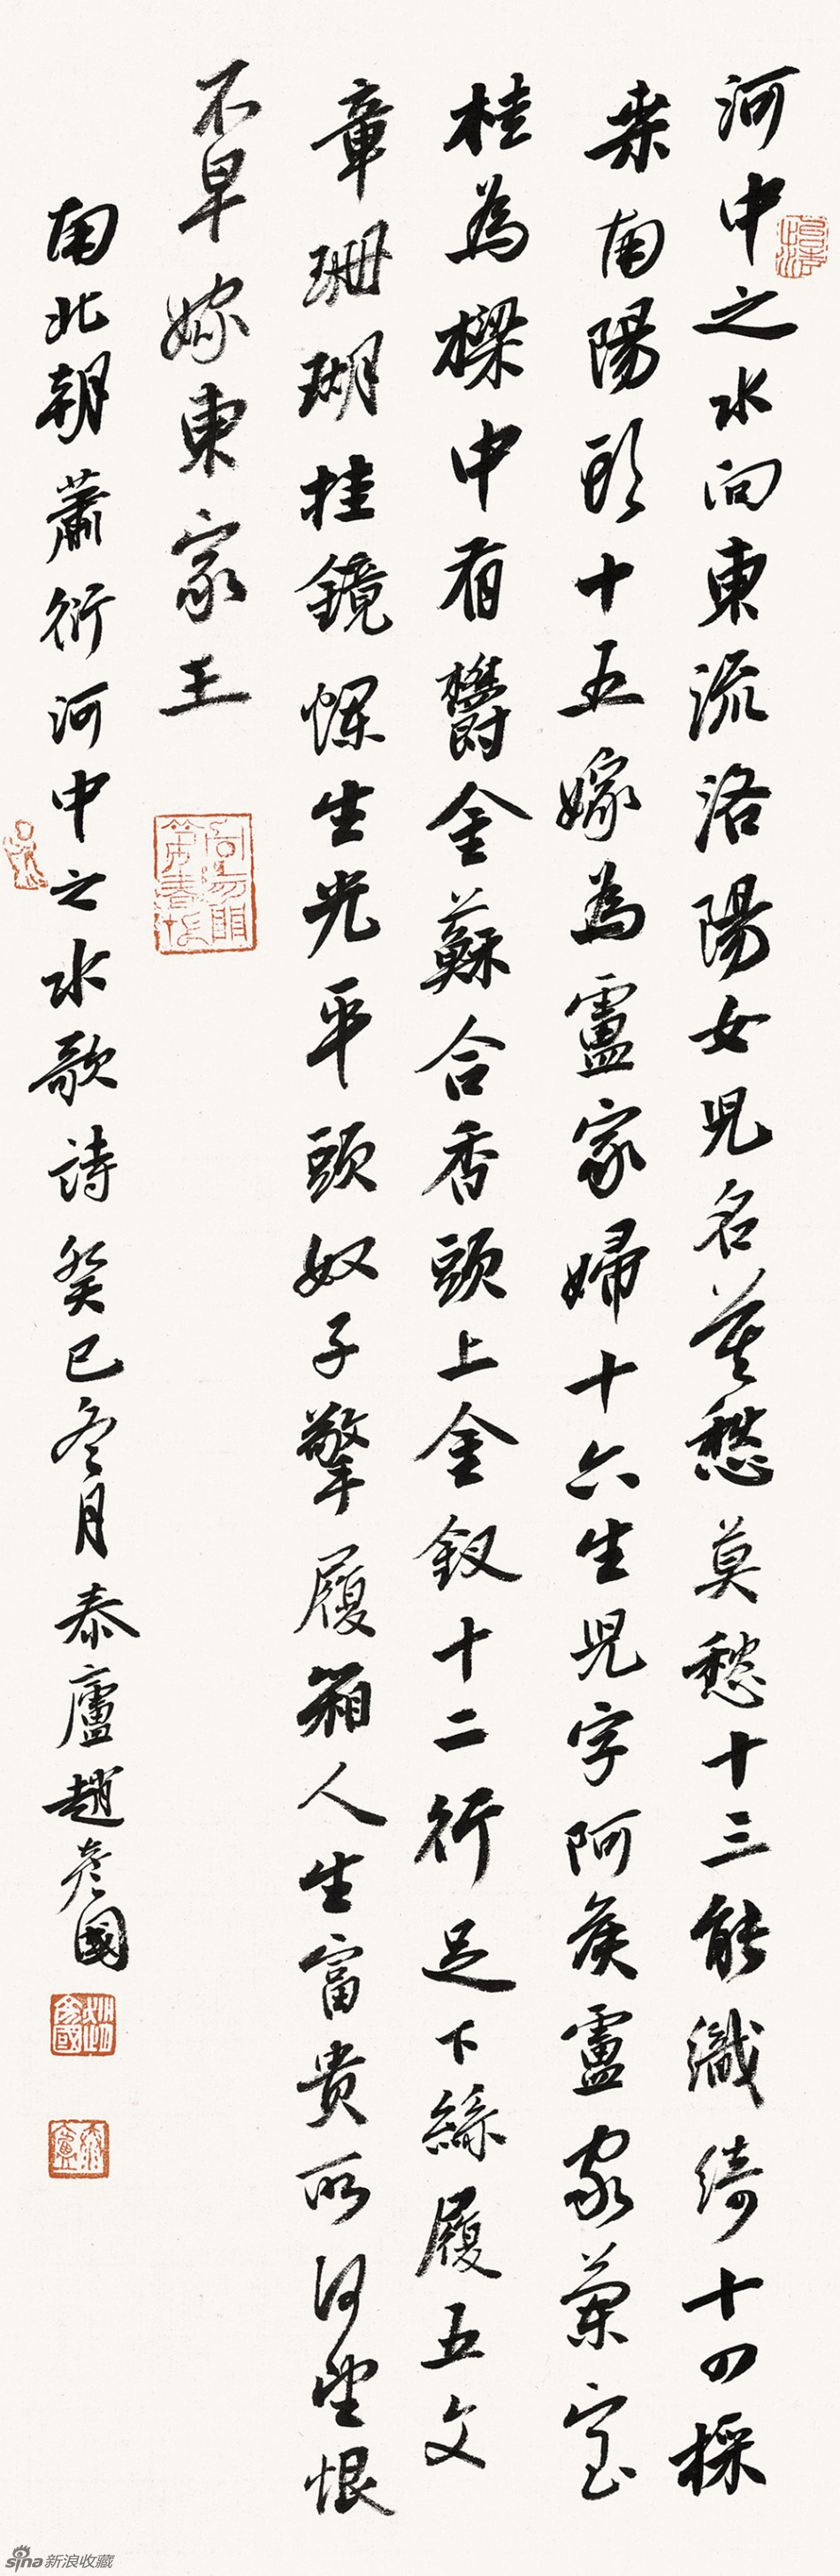 河中之水向東流洛陽女兒名莫愁莫愁十三能織綺十四採
桒南陽頭十五嫁為盧家婦十六生兒字阿侯盧家蘭室
桂為樑中有欝金蘇合香頭上金釵十二行足下絲履五文
章珊瑚挂鏡爛生光平頭奴子擎履箱人生富貴所何望恨
不早嫁東家王
南北朝蕭衍河中之水歌詩癸巳冬月泰廬趙彥國
趙彥國
泰廬
sina新浪收藏